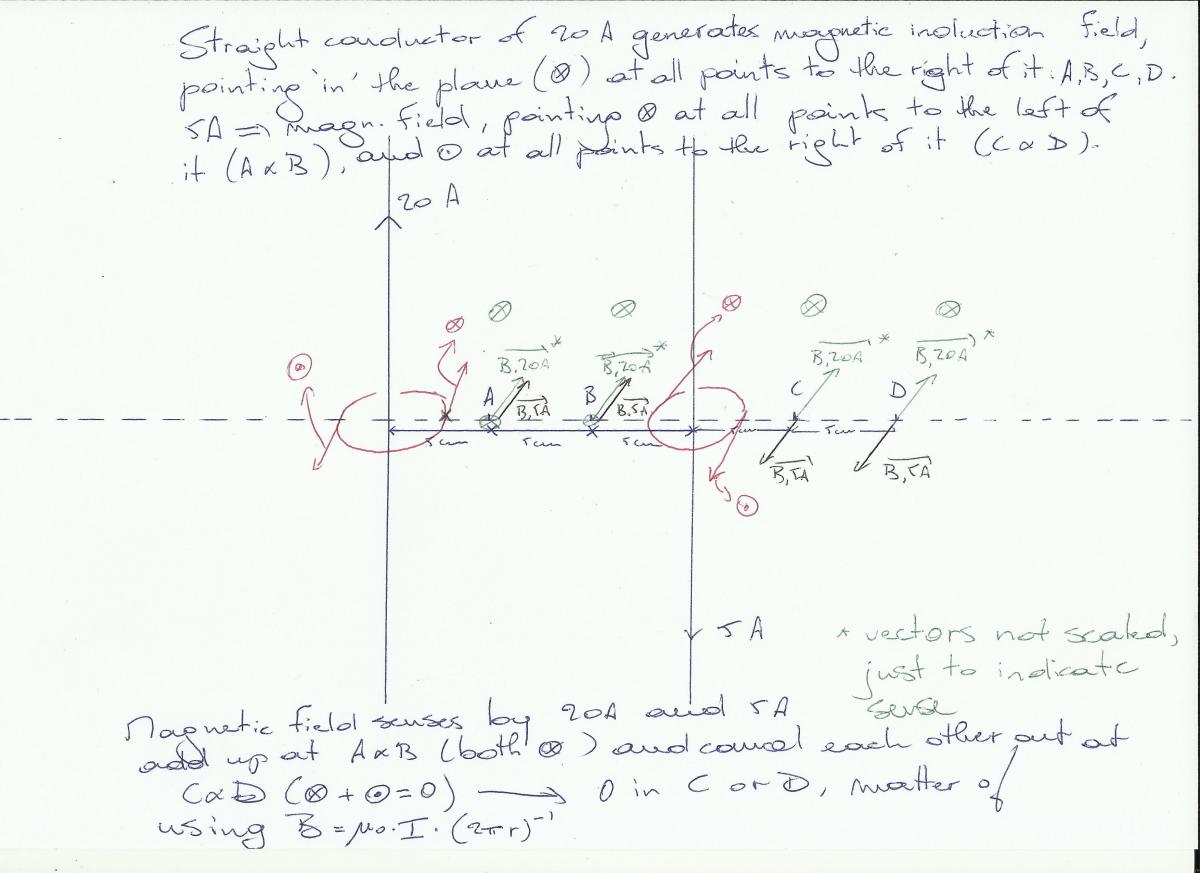 Straight conductor of 20 A generates magnetic induction field,
pointing 'in' the plane (⊗) at all points to the right of it: A, B, C, D.
5A => magn. field, pointing ⊗ at all points to the left of
it (A & B), and ⊙ at all points to the right of it (C & D).
20 A
⊗ ⊗ ⊗ ⊗ ⊗ ⊗
B,20A * B,20A * B,20A * B,20A *
⊙
A B C D
B,5A B,5A
5cm 5cm 5cm 5cm 5cm
B,5A B,5A
⊙
5 A
* vectors not scaled,
just to indicate
sense
Magnetic field senses by 20A and 5A
add up at A & B (both ⊗) and cancel each other out at
C & D (⊗ + ⊙ = 0) → 0 in C or D, matter of
using B = μ0 · I · (2πr)⁻¹